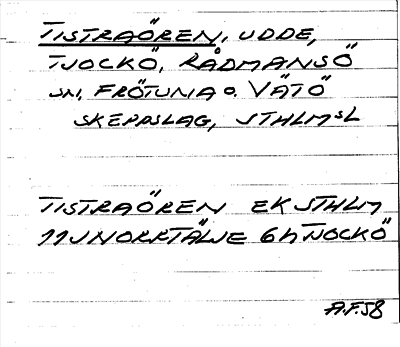 TISTRAÖREN, UDDE,
TJOCKÖ, RÅDMANSÖ
SN, FRÖTUNA O. VÄTÖ
SKEPPSLAG, STHLMSL
TISTRAÖREN EKSTHLM
11JNORRTÄLJE 6h TJOCKÖ
A.F.58